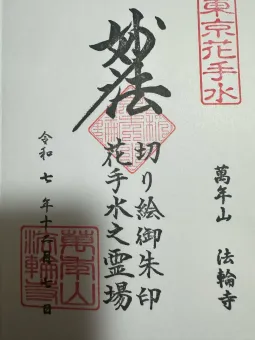 東京花手水
萬年山 法輪寺
妙法
切り絵御朱印
花手水之霊場
令和七年十 月七日
萬年山
法輪寺